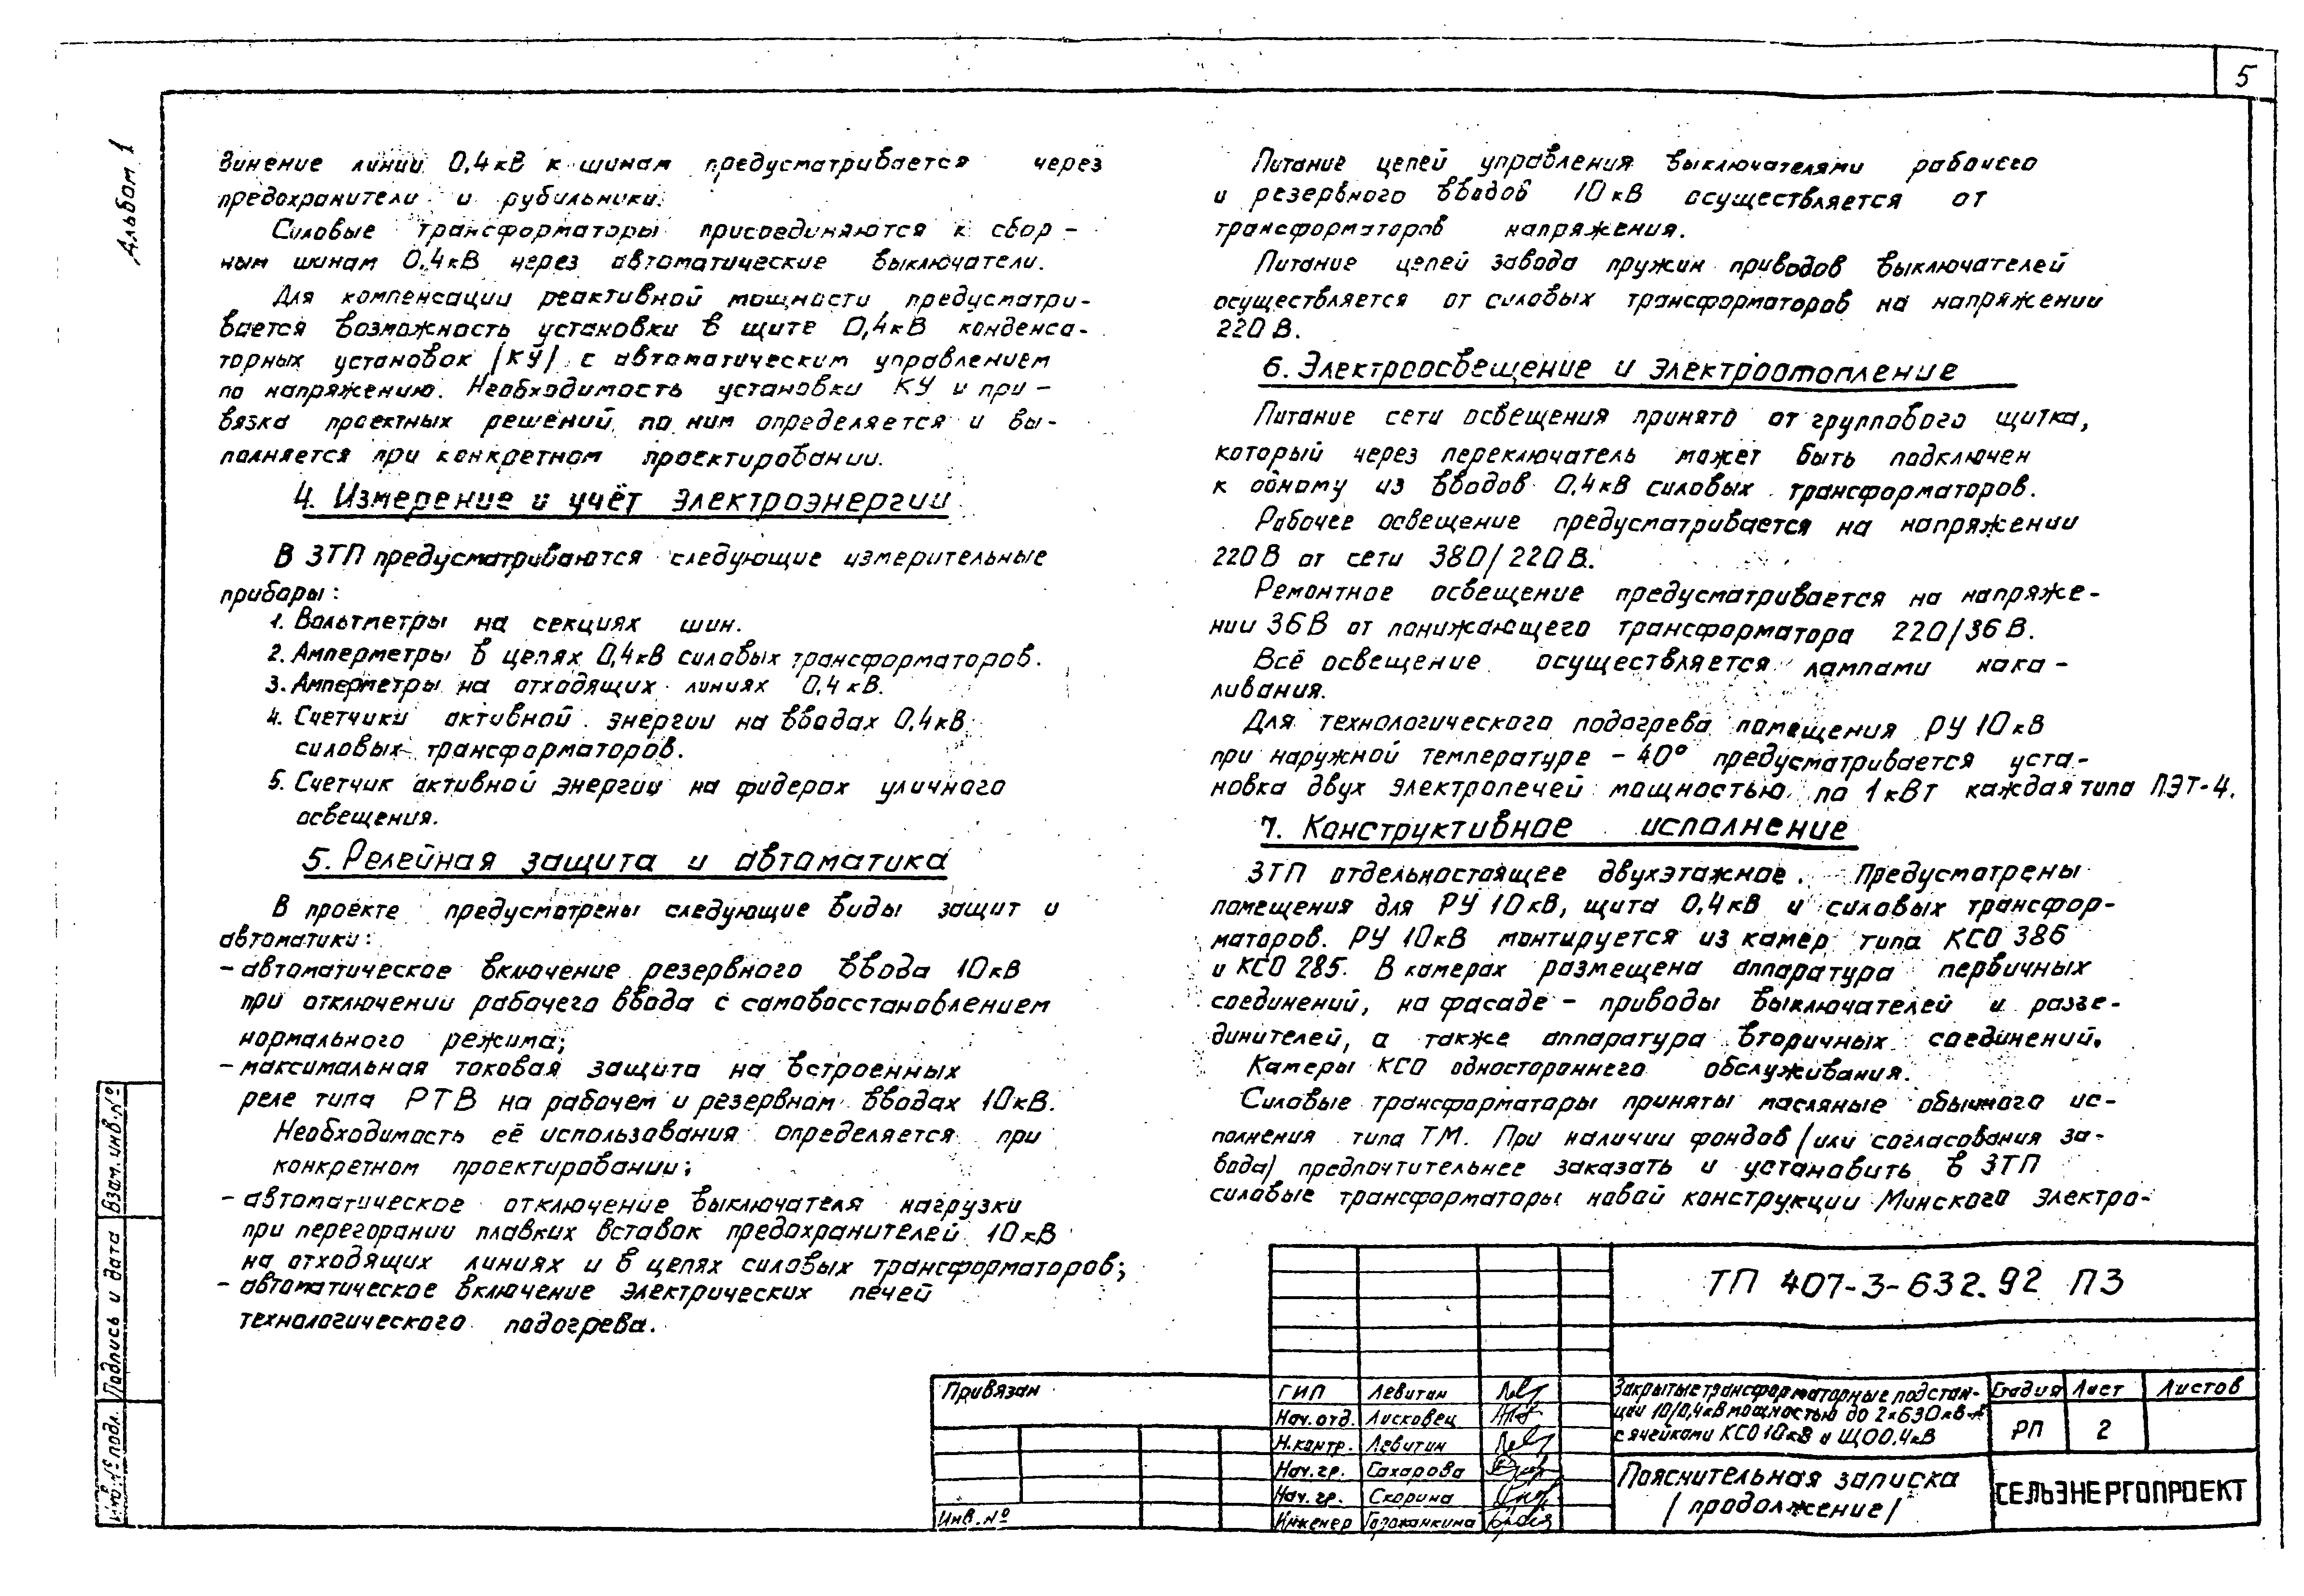 5
Альбом 1
динение линий 0,4кВ к шинам предусматривается через
предохранители и рубильники.
Силовые трансформаторы присоединяются к сбор-
ным шинам 0,4кВ через автоматические выключатели.
Для компенсации реактивной мощности предусматри-
вается возможность установки в щите 0,4кВ конденса-
торных установок /КУ/ с автоматическим управлением
по напряжению. Необходимость установки КУ и при-
вязка проектных решений по ним определяется и вы-
полняется при конкретном проектировании.
4. Измерение и учёт электроэнергии
В ЗТП предусматриваются следующие измерительные
приборы:
1. Вольтметры на секциях шин.
2. Амперметры в цепях 0,4кВ силовых трансформаторов.
3. Амперметры на отходящих линиях 0,4кВ.
4. Счетчики активной энергии на вводах 0,4кВ
силовых трансформаторов.
5. Счетчик активной энергии на фидерах уличного
освещения.
5. Релейная защита и автоматика
В проекте предусмотрены следующие виды защит и
автоматики:
- автоматическое включение резервного ввода 10кВ
при отключении рабочего ввода с самовосстановлением
нормального режима;
- максимальная токовая защита на встроенных
реле типа РТВ на рабочем и резервном вводах 10кВ.
Необходимость её использования определяется при
конкретном проектировании;
- автоматическое отключение выключателя нагрузки
при перегорании плавких вставок предохранителей 10кВ
на отходящих линиях и в цепях силовых трансформаторов;
- автоматическое включение электрических печей
технологического подогрева.
Питание цепей управления выключателями рабочего
и резервного вводов 10кВ осуществляется от
трансформаторов напряжения.
Питание цепей завода пружин приводов выключателей
осуществляется от силовых трансформаторов на напряжении
220В.
6. Электроосвещение и электроотопление
Питание сети освещения принято от группового щитка,
который через переключатель может быть подключен
к одному из вводов 0,4кВ силовых трансформаторов.
Рабочее освещение предусматривается на напряжении
220В от сети 380/220В.
Ремонтное освещение предусматривается на напряже-
нии 36В от понижающего трансформатора 220/36В.
Всё освещение осуществляется лампами нака-
ливания.
Для технологического подогрева помещения РУ 10кВ
при наружной температуре -40° предусматривается уста-
новка двух электропечей мощностью по 1кВт каждая типа ПЭТ-4.
7. Конструктивное исполнение
ЗТП отдельностоящее двухэтажное. Предусмотрены
помещения для РУ 10кВ, щита 0,4кВ и силовых трансфор-
маторов. РУ 10кВ монтируется из камер типа КСО 386
и КСО 285. В камерах размещена аппаратура первичных
соединений, на фасаде - приводы выключателей и разъе-
динителей, а также аппаратура вторичных соединений.
Камеры КСО одностороннего обслуживания.
Силовые трансформаторы приняты масляные обычного ис-
полнения типа ТМ. При наличии фондов /или согласования за-
вода) предпочтительнее заказать и установить в ЗТП
силовые трансформаторы новой конструкции Минского электро-
ТП 407-3-632.92 ПЗ
Привязан
Инв.№
ГИП Левитин
Нач.отд. Лисковец
Н.контр. Левитин
Нач.гр. Сахарова
Нач.гр. Скорина
Инженер
Закрытые трансформаторные подстан-
ции 10/0,4кВ мощностью до 2×630кВ·А
с ячейками КСО 10кВ и ЩО 0,4кВ
Стадия Лист Листов
РП 2
Пояснительная записка
/продолжение/
СЕЛЬЭНЕРГОПРОЕКТ
Взам.инв.№
Подпись и дата
Инв.№ подл.